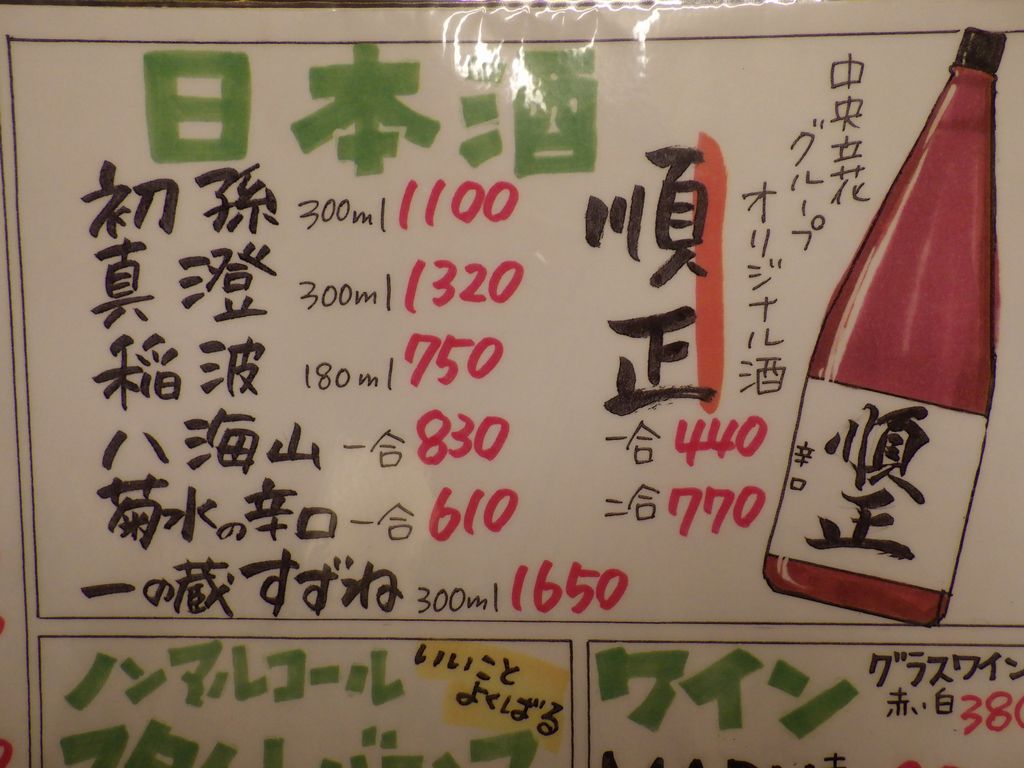 日本酒
初孫 300ml 1100
真澄 300ml 1320
稲波 180ml 750
八海山 一合 830
菊水の辛口 一合 610
一の蔵 すずね 300ml 1650
順正
中央立花
グループ
オリジナル酒
一合 440
二合 770
順正
辛口
ノンアルコール
いいこと
よくばる
ワイン
グラスワイン
赤・白 380